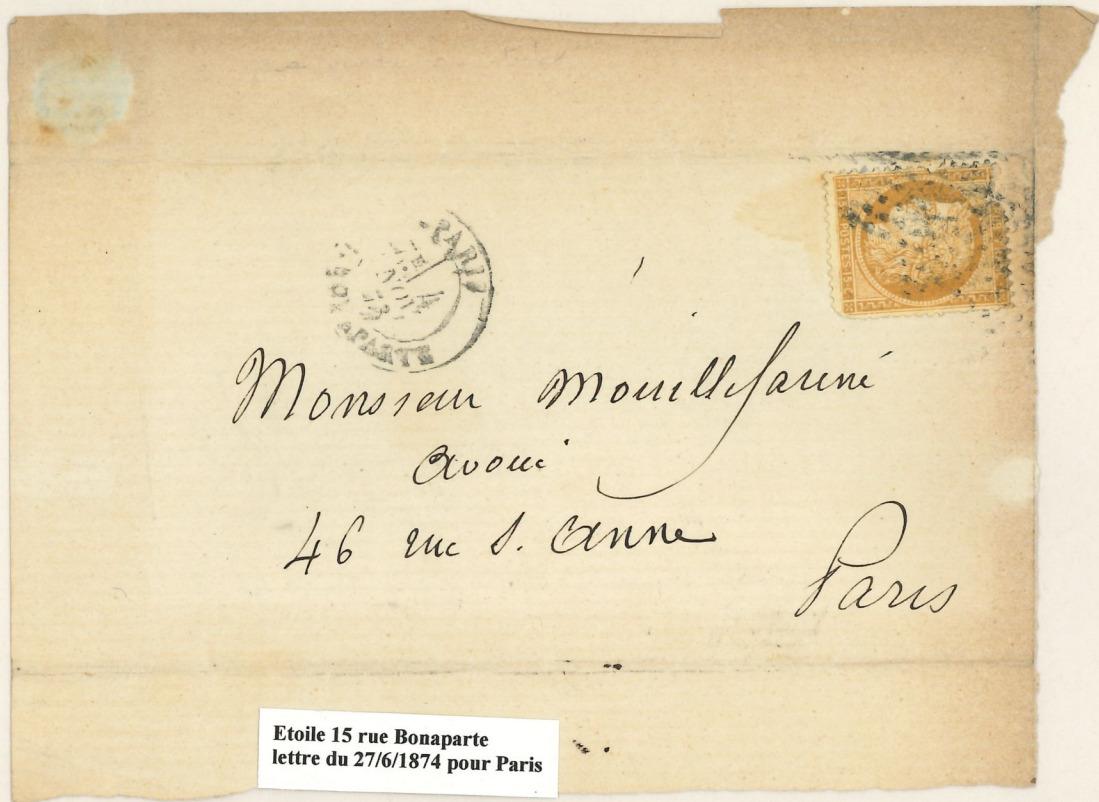 PARIS
BONAPARTE
POSTES
Monsieur Mouillefariné
avoué
46 rue S. Anne
Paris
Etoile 15 rue Bonaparte
lettre du 27/6/1874 pour Paris